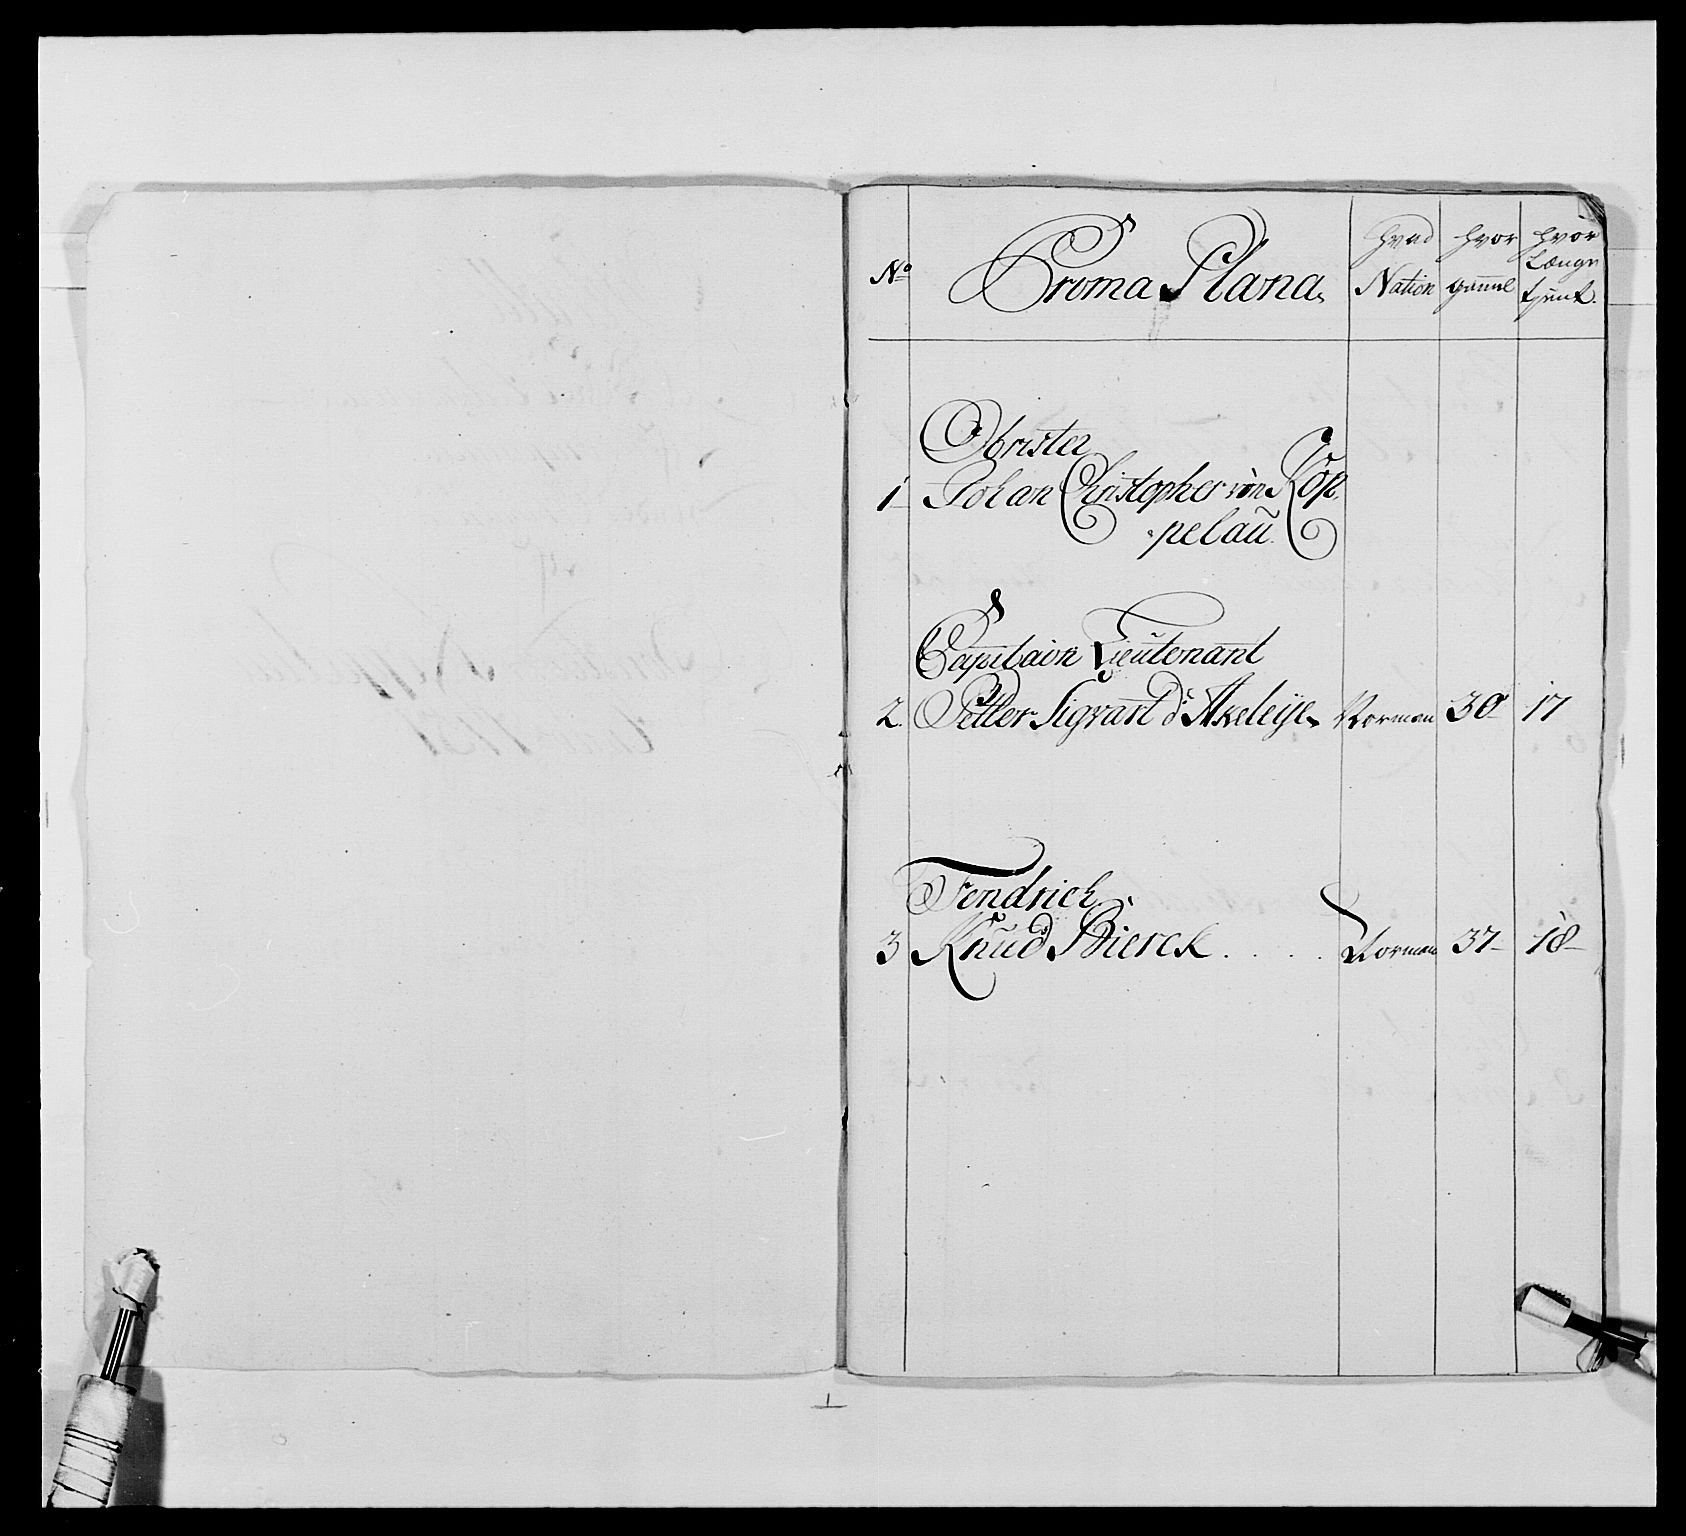 No Proma Plana. hvad Nation hvor gammel hvor Længe tjent.
Obrister
1 Johan Christopher von Köp-
pelau
Capitain Lieutenant
2. Petter Sigvart d'Akeleije Norman 30 17
Fendrich
3 Knud Bierck . . . . Norman 37 18